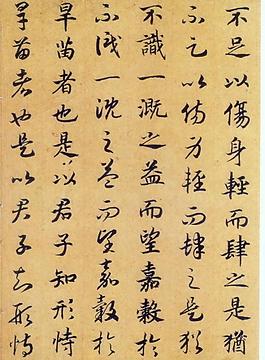 不足以傷身輕而肆之是猶
不足以傷身輕而肆之是猶
不識一溉之益而望嘉穀於
不識一溉之益而望嘉穀於
旱苗者也是以君子知形恃
旱苗者也是以君子知形恃